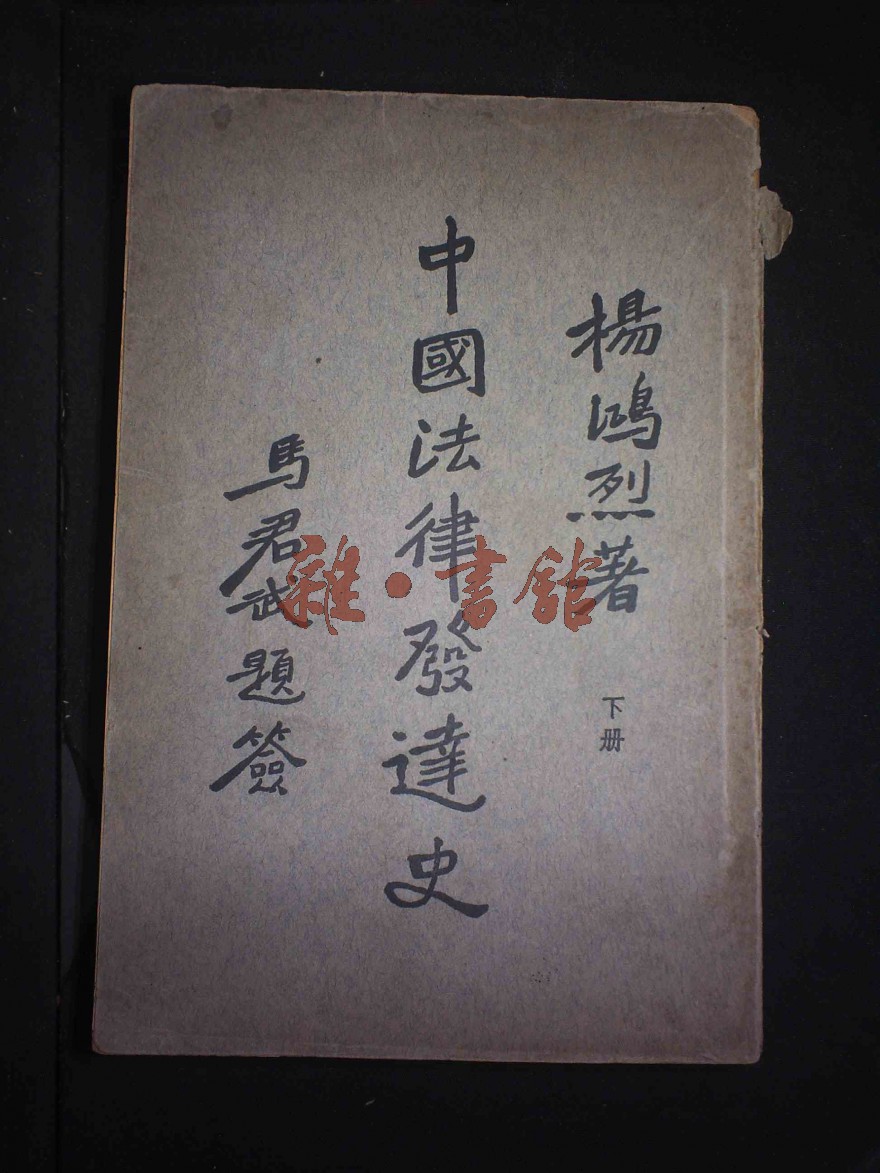 楊鴻烈著
下册
中國法律發達史
馬君武題簽
雜·書館